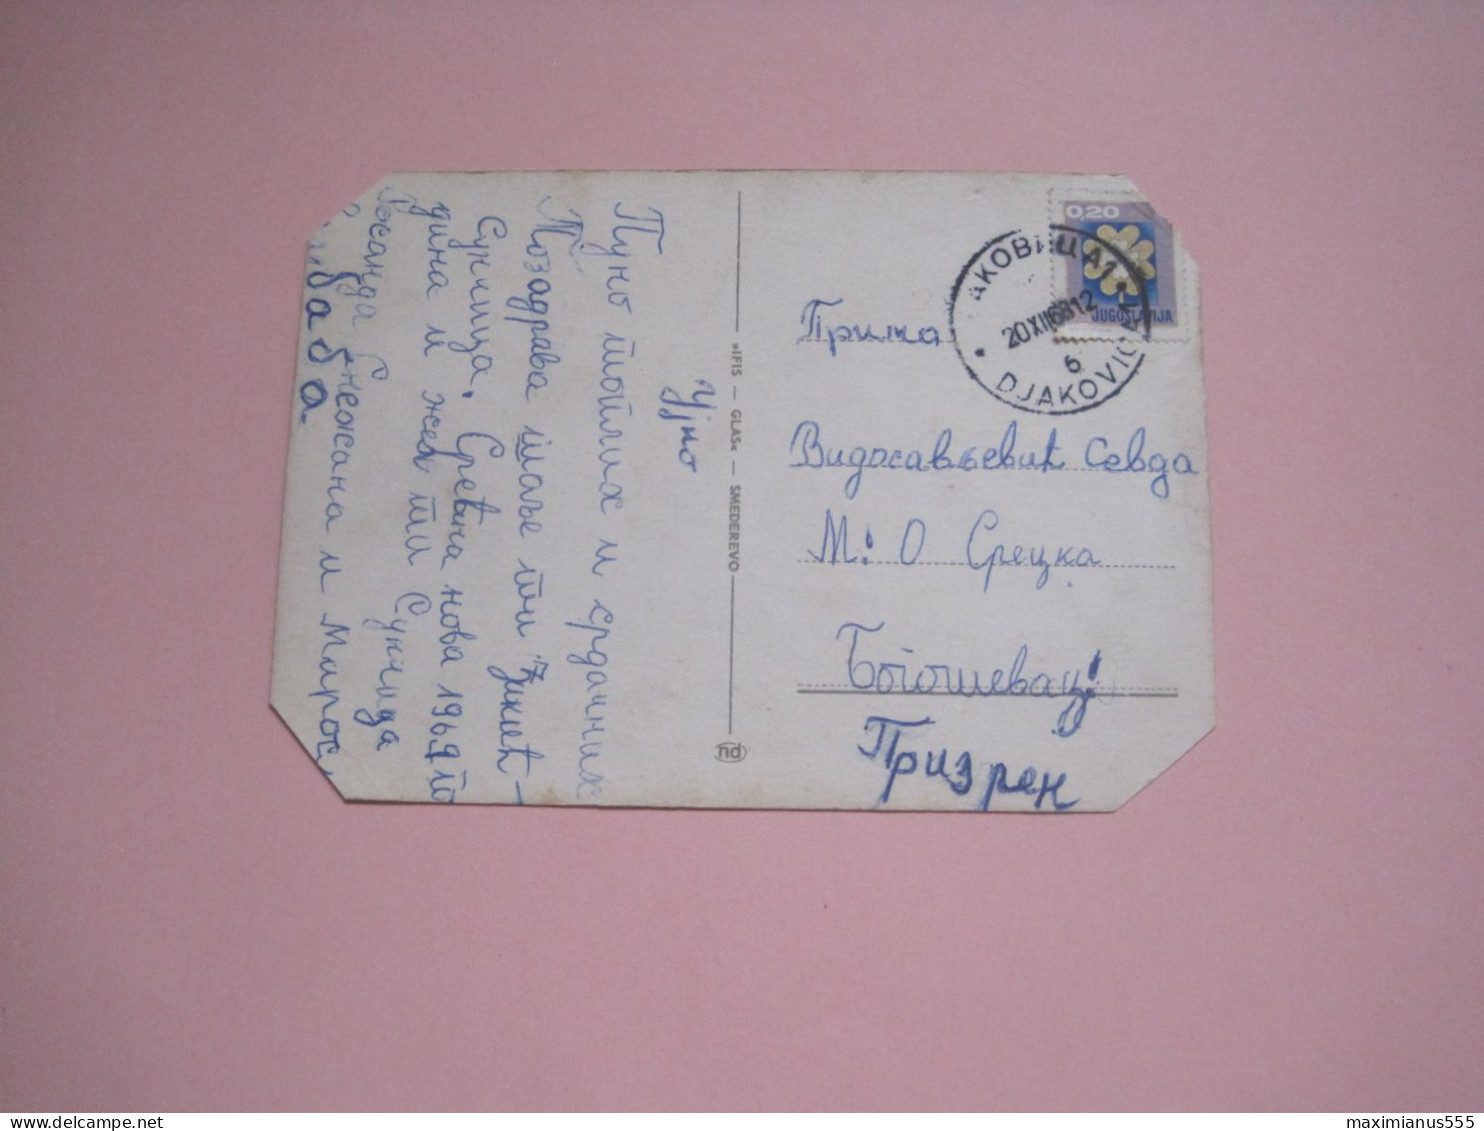 Ујно
Пуно топлих и срдачних
Поздрава шаље ти Зикић
Сунчица. Срећна нова 1969 го
дина и жел ти Сунчица
Росанда Снежана и Мирос
баба
»IFIS — GLAS« — SMEDEREVO
nd
0,20
JUGOSLAVIJA
АКОВИЦА 1
20 XII 68 12
6
DJAKOVICA
Прима
Видосављевић Севда
М: О Срецка
Богошевац
Призрен
delcampe.net
maximianus555